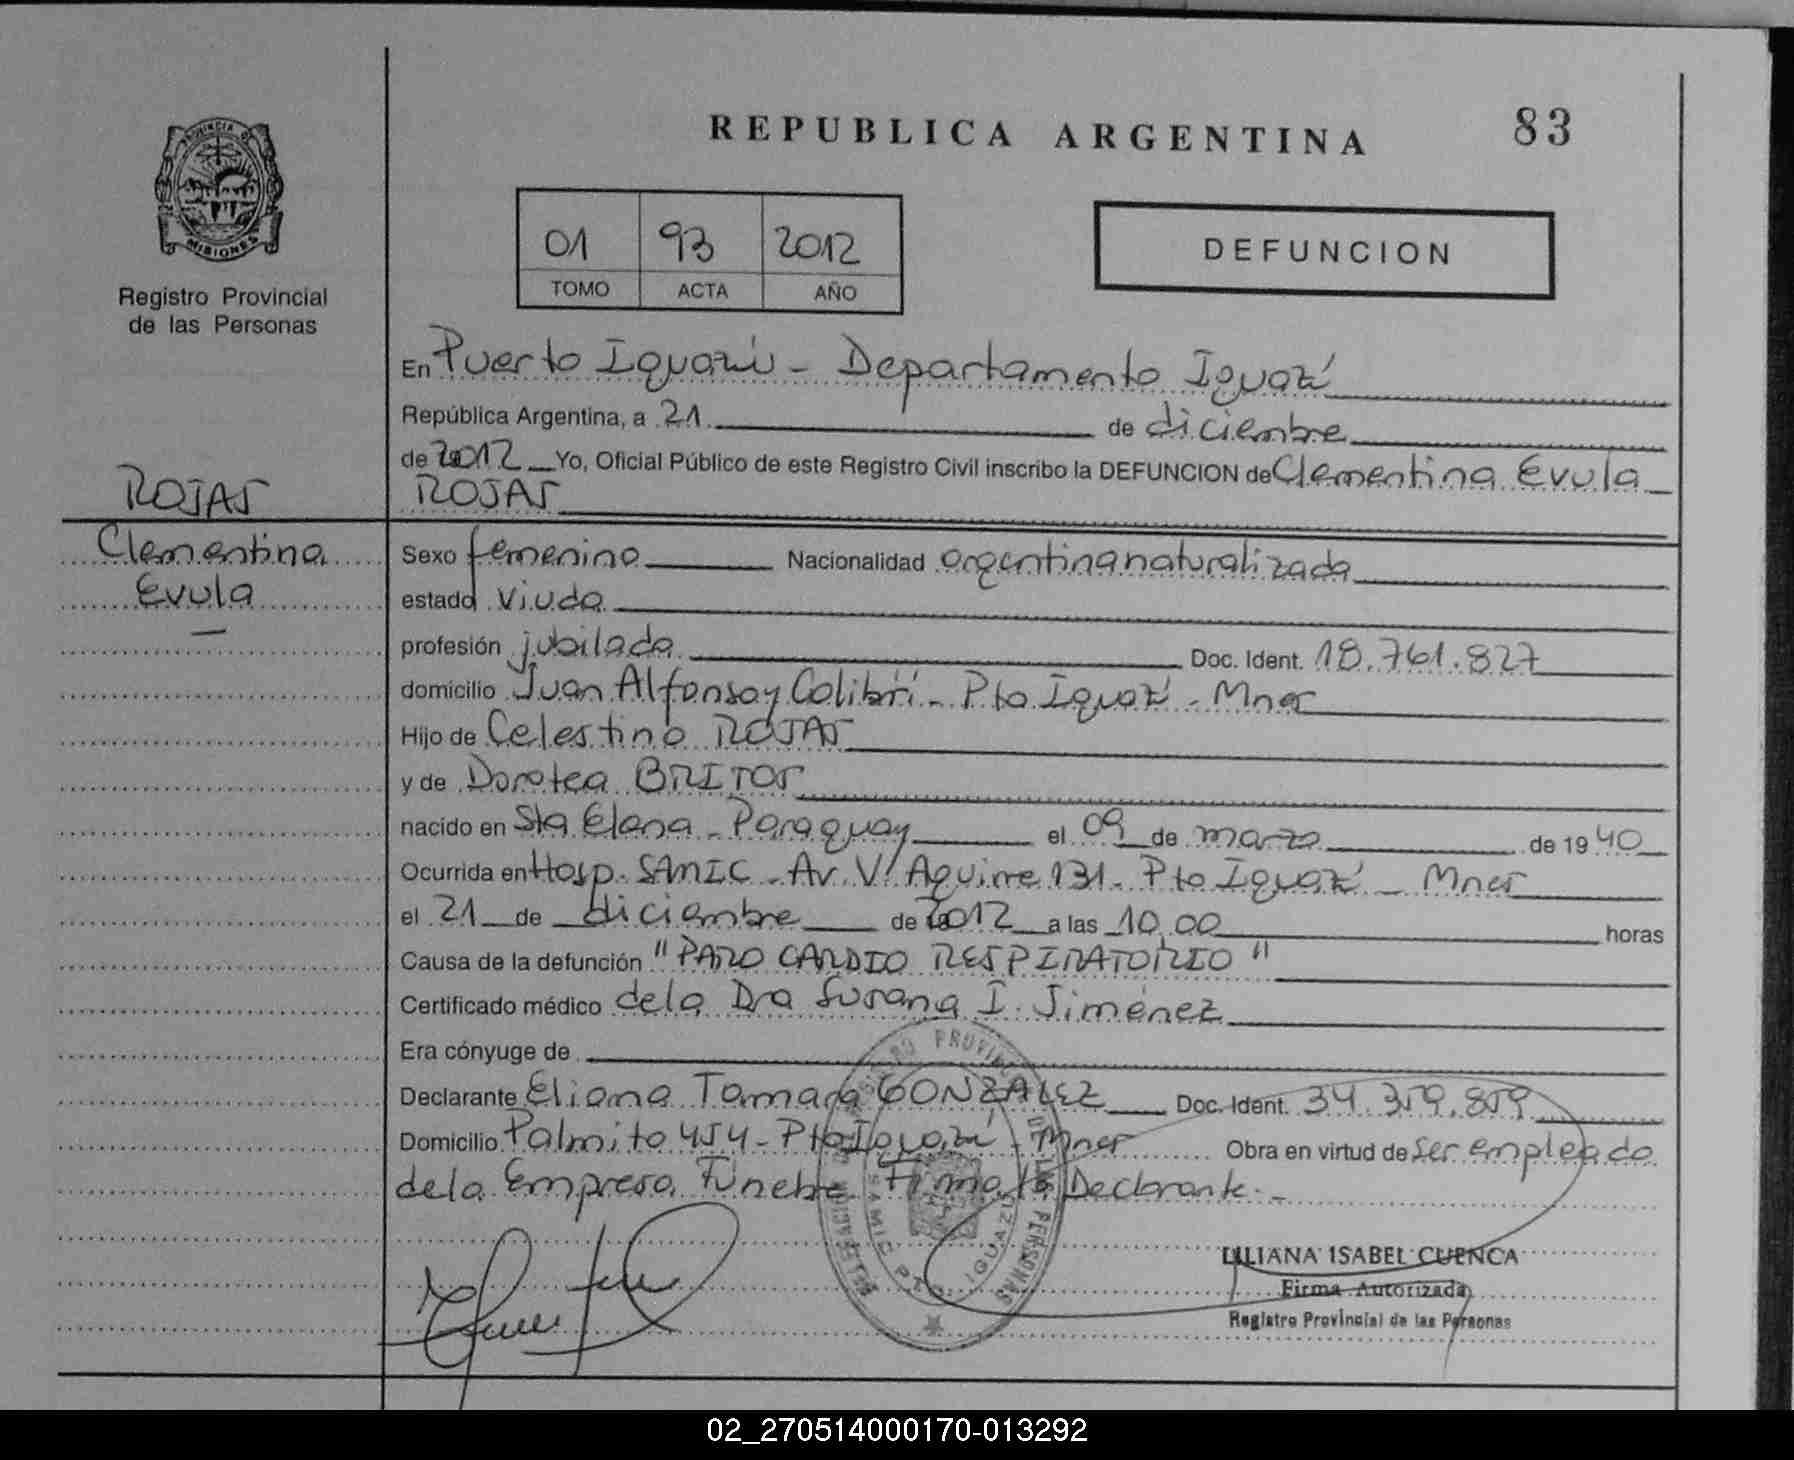 REPUBLICA ARGENTINA 83
PROVINCIA DE
MISIONES
Registro Provincial
de las Personas
01 93 2012
TOMO ACTA AÑO
DEFUNCION
En Puerto Iguazú - Departamento Iguazú
República Argentina, a 21 de diciembre
de 2012 Yo, Oficial Público de este Registro Civil inscribo la DEFUNCION de Clementina Evula
ROJAS
ROJAS
Clementina
Evula
Sexo femenino Nacionalidad argentina naturalizada
estado viuda
profesión jubilada Doc. Ident. 18.761.827
domicilio Juan Alfonso y Colibrí - Pto Iguazú - Mnes
Hijo de Celestino ROJAS
y de Dorotea BRITOS
nacido en Sta Elena - Paraguay el 09 de marzo de 1940
Ocurrida en Hosp. SAMIC - Av. V. Aguirre 131 - Pto Iguazú - Mnes
el 21 de diciembre de 2012 a las 10,00 horas
Causa de la defunción "PARO CARDIO RESPIRATORIO"
Certificado médico de la Dra Susana I. Jiménez
Era cónyuge de
Declarante Eliana Tamara GONZALEZ Doc. Ident. 34.359.859
Domicilio Palmito 454 - Pto Iguazú - Mnes Obra en virtud de ser empleado
de la Empresa Fúnebre. Firma la Declarante.-
REGISTRO PROVINCIAL DE LAS PERSONAS
SAMIC PTO. IGUAZU
LILIANA ISABEL CUENCA
Firma Autorizada
Registro Provincial de las Personas
02_270514000170-013292